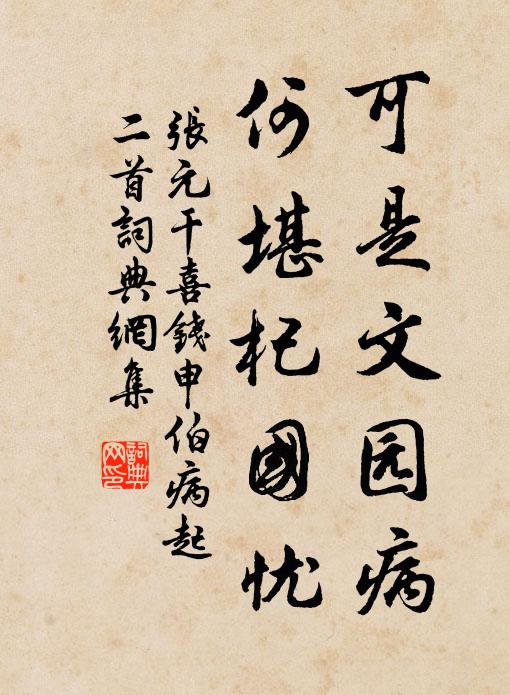 可是文园病
何堪杞國忧
張元干喜錢申伯病起
二首詞典網集
詞典网印